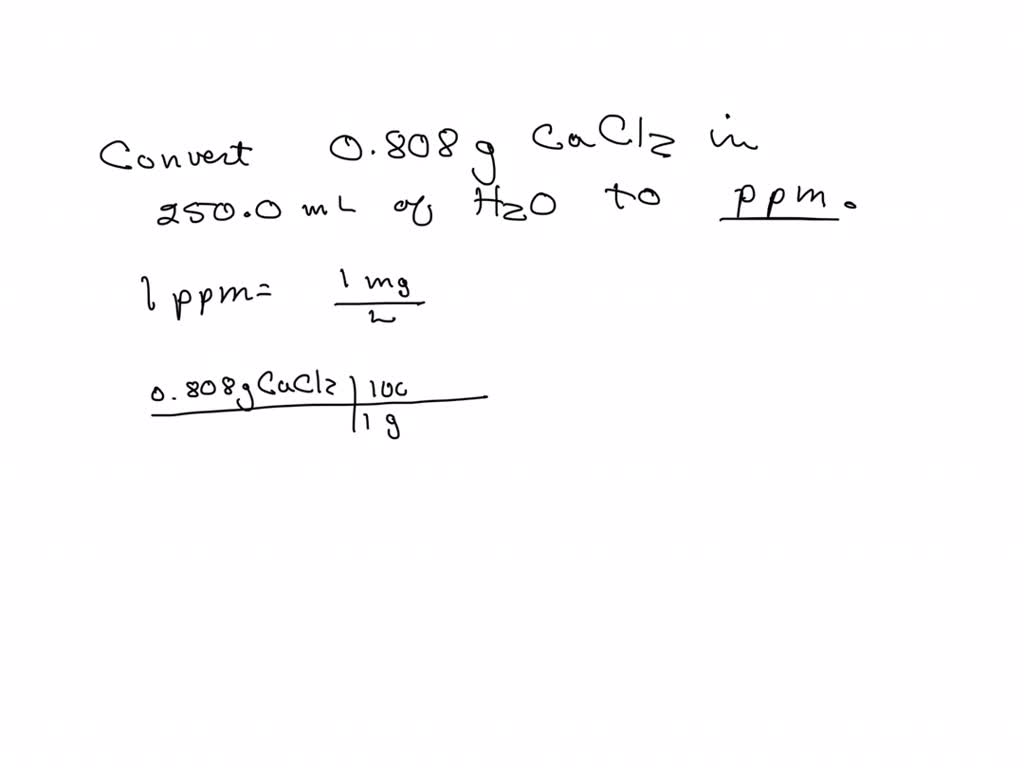 Convert 0.808 g CaCl2 in
250.0 mL of H2O to ppm.
1 ppm = 1 mg
L
0.808 g CaCl2 | 100
1 g